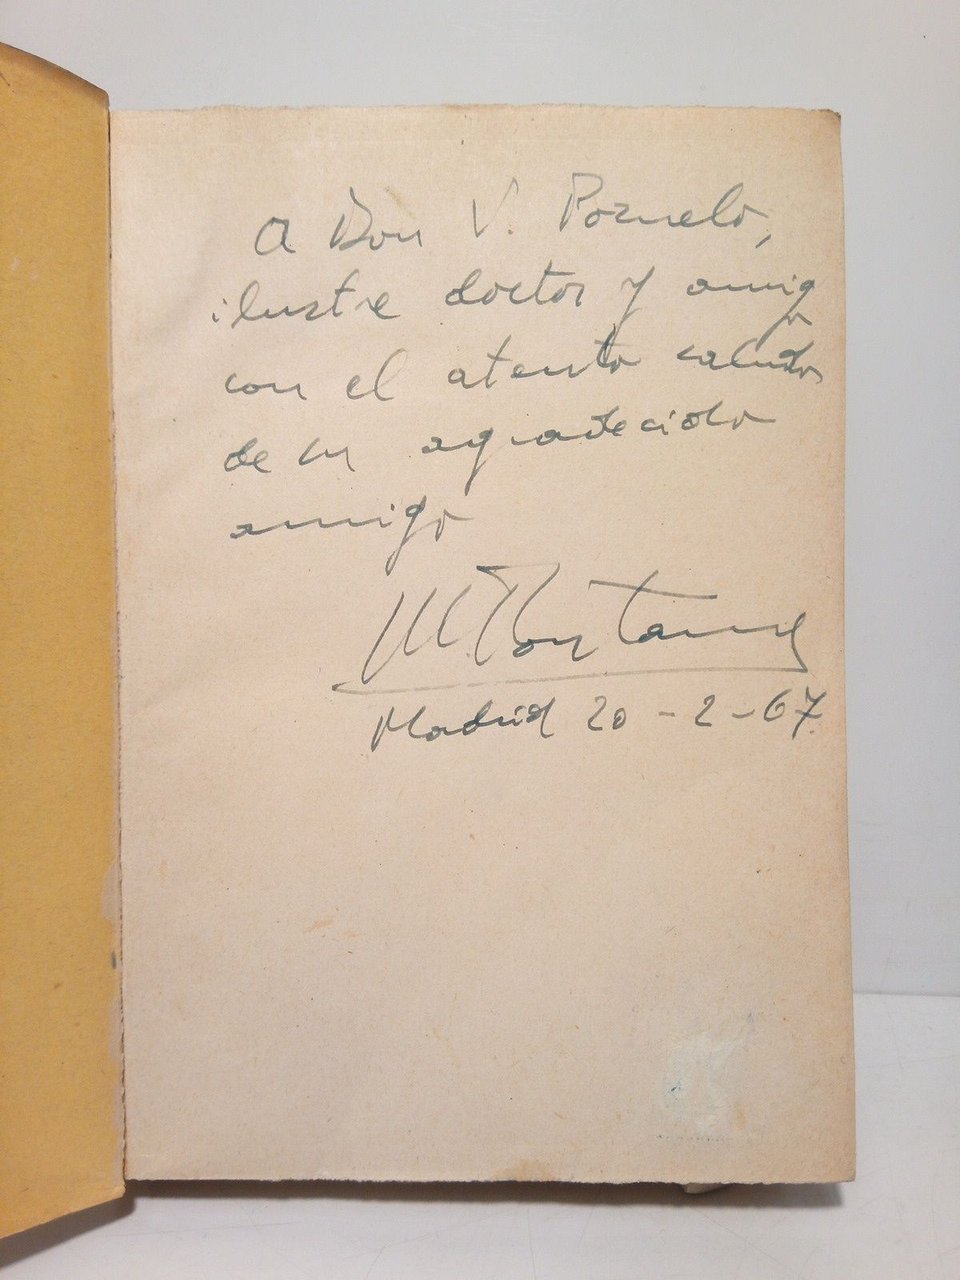 A Don V. Pozuelo,
ilustre doctor y amigo
con el atento saludo
de su agradecido
amigo
M.
Madrid 20-2-67